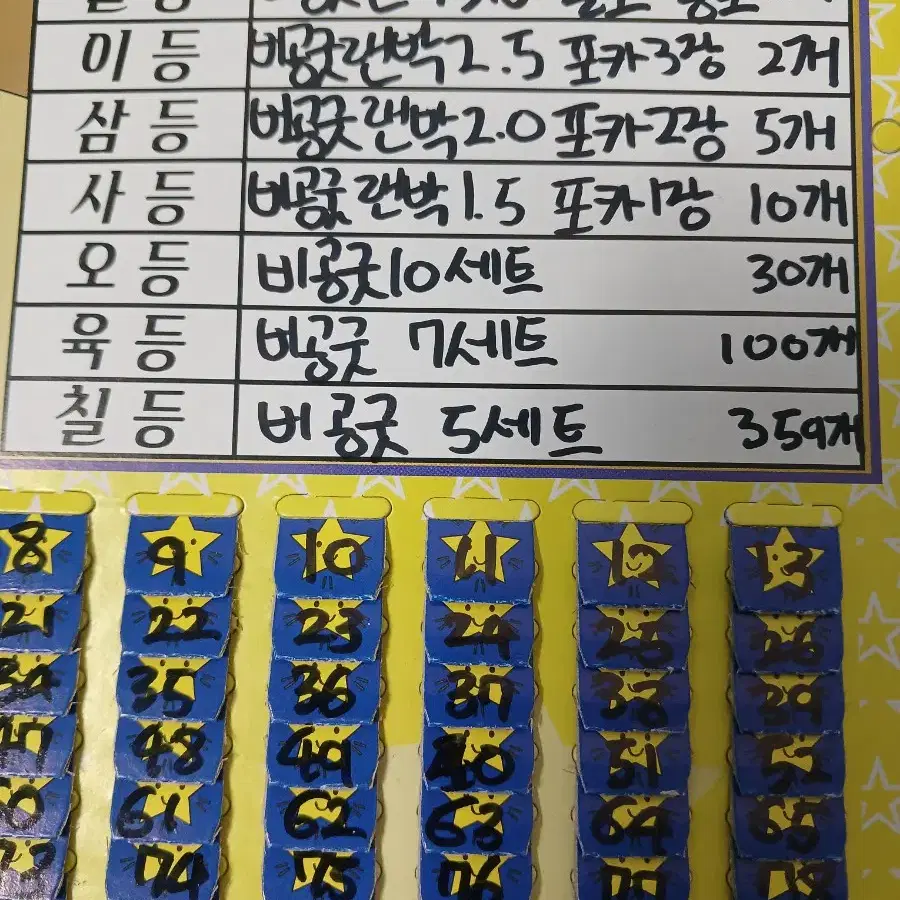 이 등 비공굿랜박2.5 포카3장 2개
삼 등 비공굿랜박2.0 포카2장 5개
사 등 비공굿랜박1.5 포카1장 10개
오 등 비공굿10세트 30개
육 등 비공굿 7세트 100개
칠 등 비공굿 5세트 359개
8 9 10 11 12 13
21 22 23 24 25 26
34 35 36 37 38 39
47 48 49 51 52
61 62 63 64 65
74 75 76 77 78